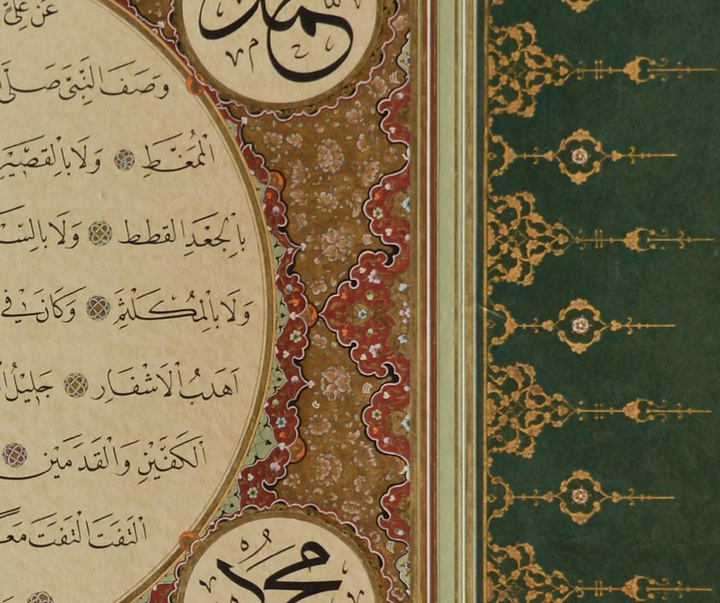 عَنْ عَلِىٍّ
وَصَفَ النَّبِىَّ صَلَّى
الْمُمَّغَطِ وَلَا بِالْقَصِيرِ
بِالْجَعْدِ الْقَطَطِ وَلَا بِالسَّبْ
وَلَا بِالْمُكَلْثَمِ وَكَانَ فِى
اَهْدَبُ الْاَشْفَارِ جَلِيلُ
الْكَفَّيْنِ وَالْقَدَمَيْنِ
الْتَفَتَ الْتَفَتَ مَعًا